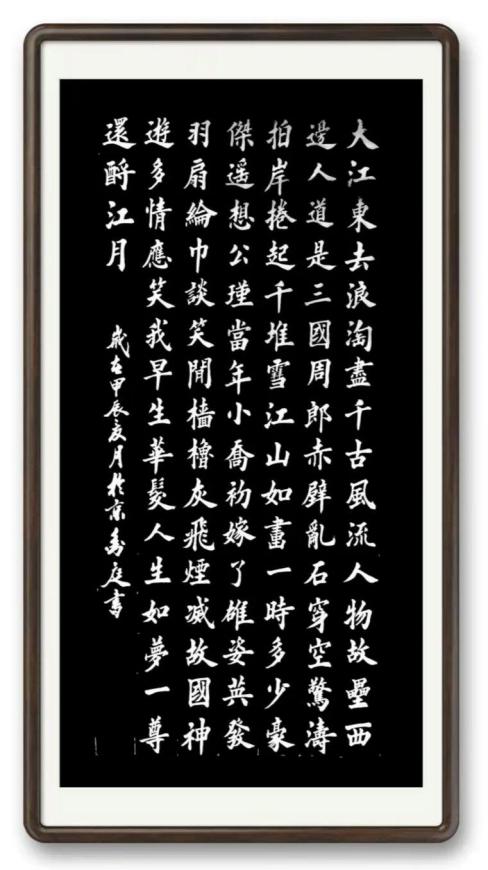 大江東去浪淘盡千古風流人物故壘西
邊人道是三國周郎赤壁亂石穿空驚濤
拍岸捲起千堆雪江山如畫一時多少豪
傑遥想公瑾當年小喬初嫁了雄姿英發
羽扇綸巾談笑間檣櫓灰飛煙滅故國神
遊多情應笑我早生華髮人生如夢一尊
還酹江月
歲在甲辰夏月於京庭書